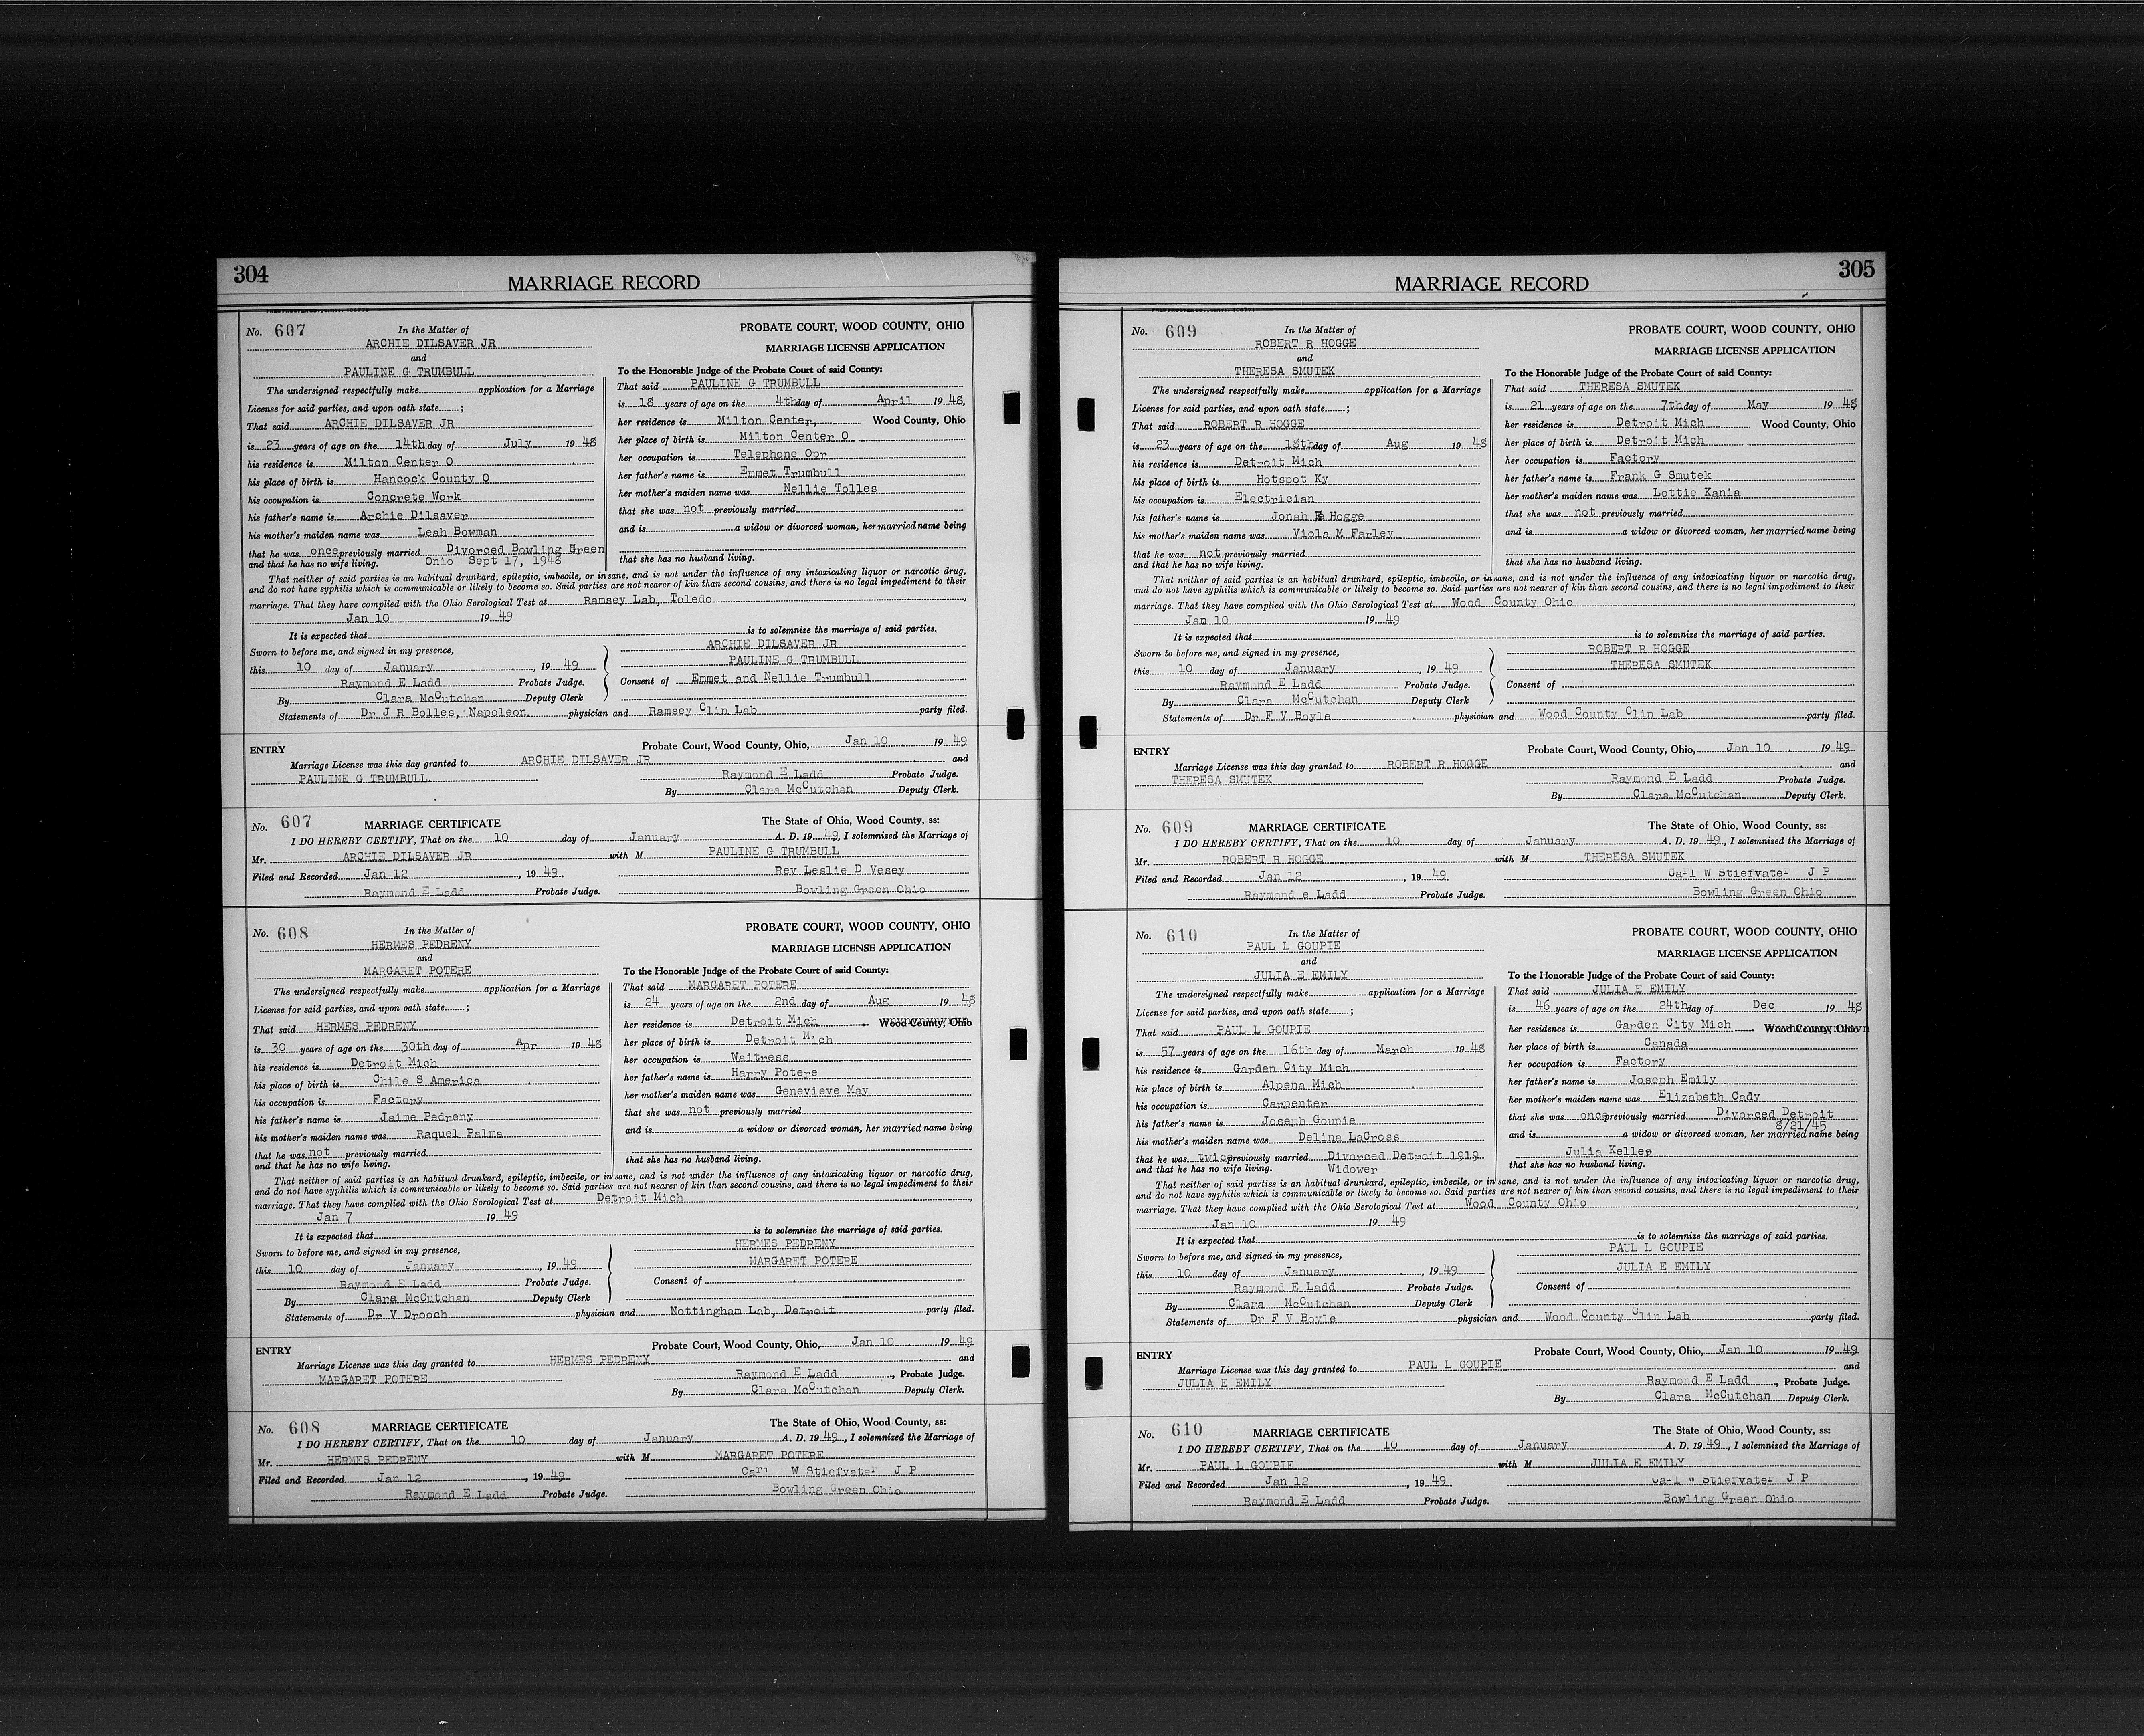 304
MARRIAGE RECORD
No. 607
In the Matter of
ARCHIE DILSAVER JR
and
PAULINE G TRUMBULL
The undersigned respectfully make application for a Marriage
License for said parties, and upon oath state ;
That said ARCHIE DILSAVER JR
is 23 years of age on the 14th day of July 19 48
his residence is Milton Center O
his place of birth is Hancock County O
his occupation is Concrete Work
his father's name is Archie Dilsaver
his mother's maiden name was Leah Bowman
that he was once previously married Divorced Bowling Green
and that he has no wife living. Ohio Sept 17, 1948
PROBATE COURT, WOOD COUNTY, OHIO
MARRIAGE LICENSE APPLICATION
To the Honorable Judge of the Probate Court of said County:
That said PAULINE G TRUMBULL
is 18 years of age on the 4th day of April 19 48,
her residence is Milton Center, Wood County, Ohio
her place of birth is Milton Center O
her occupation is Telephone Opr
her father's name is Emmet Trumbull
her mother's maiden name was Nellie Tolles
that she was not previously married
and is a widow or divorced woman, her married name being
that she has no husband living.
That neither of said parties is an habitual drunkard, epileptic, imbecile, or insane, and is not under the influence of any intoxicating liquor or narcotic drug,
and do not have syphilis which is communicable or likely to become so. Said parties are not nearer of kin than second cousins, and there is no legal impediment to their
marriage. That they have complied with the Ohio Serological Test at Ramsey Lab, Toledo ,
Jan 10 19 49
It is expected that is to solemnize the marriage of said parties.
Sworn to before me, and signed in my presence,
this 10 day of January , 19 49
Raymond E Ladd Probate Judge.
By Clara McCutchan Deputy Clerk
ARCHIE DILSAVER JR
PAULINE G TRUMBULL
Consent of Emmet and Nellie Trumbull
Statements of Dr J R Bolles, Napoleon physician and Ramsey Clin Lab party filed.
ENTRY
Probate Court, Wood County, Ohio, Jan 10 19 49
Marriage License was this day granted to ARCHIE DILSAVER JR and
PAULINE G TRUMBULL
Raymond E Ladd Probate Judge.
By Clara McCutchan Deputy Clerk.
No. 607 MARRIAGE CERTIFICATE The State of Ohio, Wood County, ss:
I DO HEREBY CERTIFY, That on the 10 day of January A. D. 19 49, I solemnized the Marriage of
Mr. ARCHIE DILSAVER JR with M PAULINE G TRUMBULL
Filed and Recorded Jan 12 , 19 49 Rev Leslie D Vesey
Raymond E Ladd Probate Judge. Bowling Green Ohio
No. 608
In the Matter of
HERMES PEDRENY
and
MARGARET POTERE
The undersigned respectfully make application for a Marriage
License for said parties, and upon oath state ;
That said HERMES PEDRENY
is 30 years of age on the 30th day of Apr 19 48
his residence is Detroit Mich
his place of birth is Chile S America
his occupation is Factory
his father's name is Jaime Pedreny
his mother's maiden name was Raquel Palma
that he was not previously married
and that he has no wife living.
PROBATE COURT, WOOD COUNTY, OHIO
MARRIAGE LICENSE APPLICATION
To the Honorable Judge of the Probate Court of said County:
That said MARGARET POTERE
is 24 years of age on the 2nd day of Aug 19 48
her residence is Detroit Mich Wood County, Ohio
her place of birth is Detroit Mich
her occupation is Waitress
her father's name is Harry Potere
her mother's maiden name was Genevieve May
that she was not previously married
and is a widow or divorced woman, her married name being
that she has no husband living.
That neither of said parties is an habitual drunkard, epileptic, imbecile, or insane, and is not under the influence of any intoxicating liquor or narcotic drug,
and do not have syphilis which is communicable or likely to become so. Said parties are not nearer of kin than second cousins, and there is no legal impediment to their
marriage. That they have complied with the Ohio Serological Test at Detroit Mich ,
Jan 7 19 49
It is expected that is to solemnize the marriage of said parties.
Sworn to before me, and signed in my presence,
this 10 day of January , 19 49
Raymond E Ladd Probate Judge.
By Clara McCutchan Deputy Clerk
HERMES PEDRENY
MARGARET POTERE
Consent of
Statements of Dr V Drooch physician and Nottingham Lab, Detroit party filed.
ENTRY
Probate Court, Wood County, Ohio, Jan 10 19 49
Marriage License was this day granted to HERMES PEDRENY and
MARGARET POTERE
Raymond E Ladd , Probate Judge.
By Clara McCutchan Deputy Clerk.
No. 608 MARRIAGE CERTIFICATE The State of Ohio, Wood County, ss:
I DO HEREBY CERTIFY, That on the 10 day of January A. D. 19 49 , I solemnized the Marriage of
Mr. HERMES PEDRENY with M MARGARET POTERE
Filed and Recorded Jan 12 , 19 49 Carl W Stiefvater J P
Raymond E Ladd Probate Judge. Bowling Green Ohio
305
MARRIAGE RECORD
No. 609
In the Matter of
ROBERT R HOGGE
and
THERESA SMUTEK
The undersigned respectfully make application for a Marriage
License for said parties, and upon oath state ;
That said ROBERT R HOGGE
is 23 years of age on the 18th day of Aug 19 48
his residence is Detroit Mich
his place of birth is Hotspot Ky
his occupation is Electrician
his father's name is Jonah Hogge
his mother's maiden name was Viola M Farley
that he was not previously married
and that he has no wife living.
PROBATE COURT, WOOD COUNTY, OHIO
MARRIAGE LICENSE APPLICATION
To the Honorable Judge of the Probate Court of said County:
That said THERESA SMUTEK
is 21 years of age on the 7th day of May 19 48
her residence is Detroit Mich Wood County, Ohio
her place of birth is Detroit Mich
her occupation is Factory
her father's name is Frank G Smutek
her mother's maiden name was Lottie Kania
that she was not previously married
and is a widow or divorced woman, her married name being
that she has no husband living.
That neither of said parties is an habitual drunkard, epileptic, imbecile, or insane, and is not under the influence of any intoxicating liquor or narcotic drug,
and do not have syphilis which is communicable or likely to become so. Said parties are not nearer of kin than second cousins, and there is no legal impediment to their
marriage. That they have complied with the Ohio Serological Test at Wood County Ohio ,
Jan 10 19 49
It is expected that is to solemnize the marriage of said parties.
Sworn to before me, and signed in my presence,
this 10 day of January , 19 49
Raymond E Ladd Probate Judge.
By Clara McCutchan Deputy Clerk
ROBERT R HOGGE
THERESA SMUTEK
Consent of
Statements of Dr F V Boyle physician and Wood County Clin Lab party filed.
ENTRY
Probate Court, Wood County, Ohio, Jan 10 19 49
Marriage License was this day granted to ROBERT R HOGGE and
THERESA SMUTEK
Raymond E Ladd Probate Judge.
By Clara McCutchan Deputy Clerk.
No. 609 MARRIAGE CERTIFICATE The State of Ohio, Wood County, ss:
I DO HEREBY CERTIFY, That on the 10 day of January A. D. 19 49 , I solemnized the Marriage of
Mr. ROBERT R HOGGE with M THERESA SMUTEK
Filed and Recorded Jan 12 , 19 49 Carl W Stiefvater J P
Raymond e Ladd Probate Judge. Bowling Green Ohio
No. 610
In the Matter of
PAUL L GOUPIE
and
JULIA E EMILY
The undersigned respectfully make application for a Marriage
License for said parties, and upon oath state ;
That said PAUL L GOUPIE
is 57 years of age on the 16th day of March 19 48
his residence is Garden City Mich
his place of birth is Alpena Mich
his occupation is Carpenter
his father's name is Joseph Goupie
his mother's maiden name was Delina LaCross
that he was twice previously married Divorced Detroit 1919
and that he has no wife living. Widower
PROBATE COURT, WOOD COUNTY, OHIO
MARRIAGE LICENSE APPLICATION
To the Honorable Judge of the Probate Court of said County:
That said JULIA E EMILY
is 46 years of age on the 24th day of Dec 19 48
her residence is Garden City Mich Wood County, Ohio
her place of birth is Canada
her occupation is Factory
her father's name is Joseph Emily
her mother's maiden name was Elizabeth Cady
that she was once previously married Divorced Detroit
8/21/45
and is a widow or divorced woman, her married name being
Julia Keller
that she has no husband living.
That neither of said parties is an habitual drunkard, epileptic, imbecile, or insane, and is not under the influence of any intoxicating liquor or narcotic drug,
and do not have syphilis which is communicable or likely to become so. Said parties are not nearer of kin than second cousins, and there is no legal impediment to their
marriage. That they have complied with the Ohio Serological Test at Wood County Ohio ,
Jan 10 19 49
It is expected that is to solemnize the marriage of said parties.
Sworn to before me, and signed in my presence,
this 10 day of January , 19 49
Raymond E Ladd Probate Judge.
By Clara McCutchan Deputy Clerk
PAUL L GOUPIE
JULIA E EMILY
Consent of
Statements of Dr F V Boyle physician and Wood County Clin Lab party filed.
ENTRY
Probate Court, Wood County, Ohio, Jan 10 19 49
Marriage License was this day granted to PAUL L GOUPIE and
JULIA E EMILY
Raymond E Ladd , Probate Judge.
By Clara McCutchan Deputy Clerk.
No. 610 MARRIAGE CERTIFICATE The State of Ohio, Wood County, ss:
I DO HEREBY CERTIFY, That on the 10 day of January A. D. 19 49 , I solemnized the Marriage of
Mr. PAUL L GOUPIE with M JULIA E EMILY
Filed and Recorded Jan 12 , 19 49 Carl W Stiefvater J P
Raymond E Ladd Probate Judge. Bowling Green Ohio